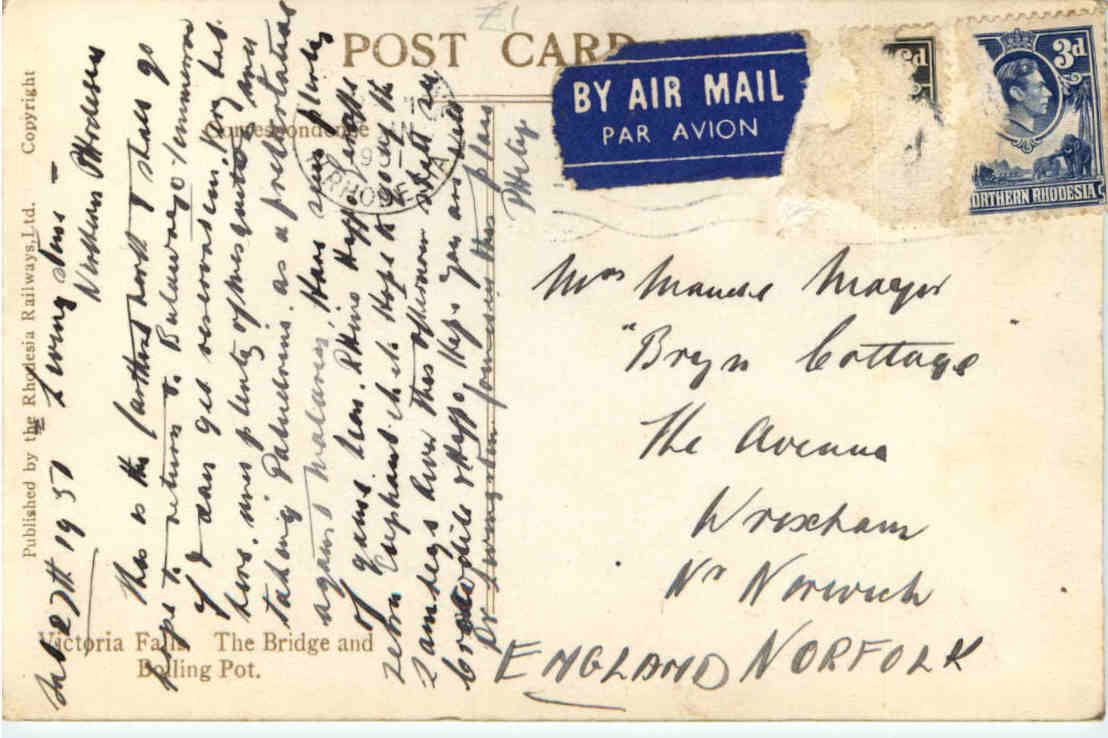 £1
POST CARD
BY AIR MAIL
PAR AVION
3d
NORTHERN RHODESIA
Correspondence
RHODESIA
Published by the Rhodesia Railways, Ltd. Copyright
Victoria Falls. The Bridge and
Boiling Pot.
27th 1951 Livingstone
Northern Rhodesia
This is the farthest north I shall go
to return to Bulawayo tomorrow
if I can get reservations. Very hot
here. plenty of mosquitos am
taking Paludrine as a precaution
against malaria. Have seen plenty
of game here. Hippo Giraffe
zebra Elephant etc hope to go up the
Zambezi River this afternoon
crocodile & Hippo. Hope you are well
Dr Livingstone this place
Philip
Mrs Maude Mayor
"Bryn Cottage
The Avenue
Wroxham
Nr Norwich
ENGLAND NORFOLK